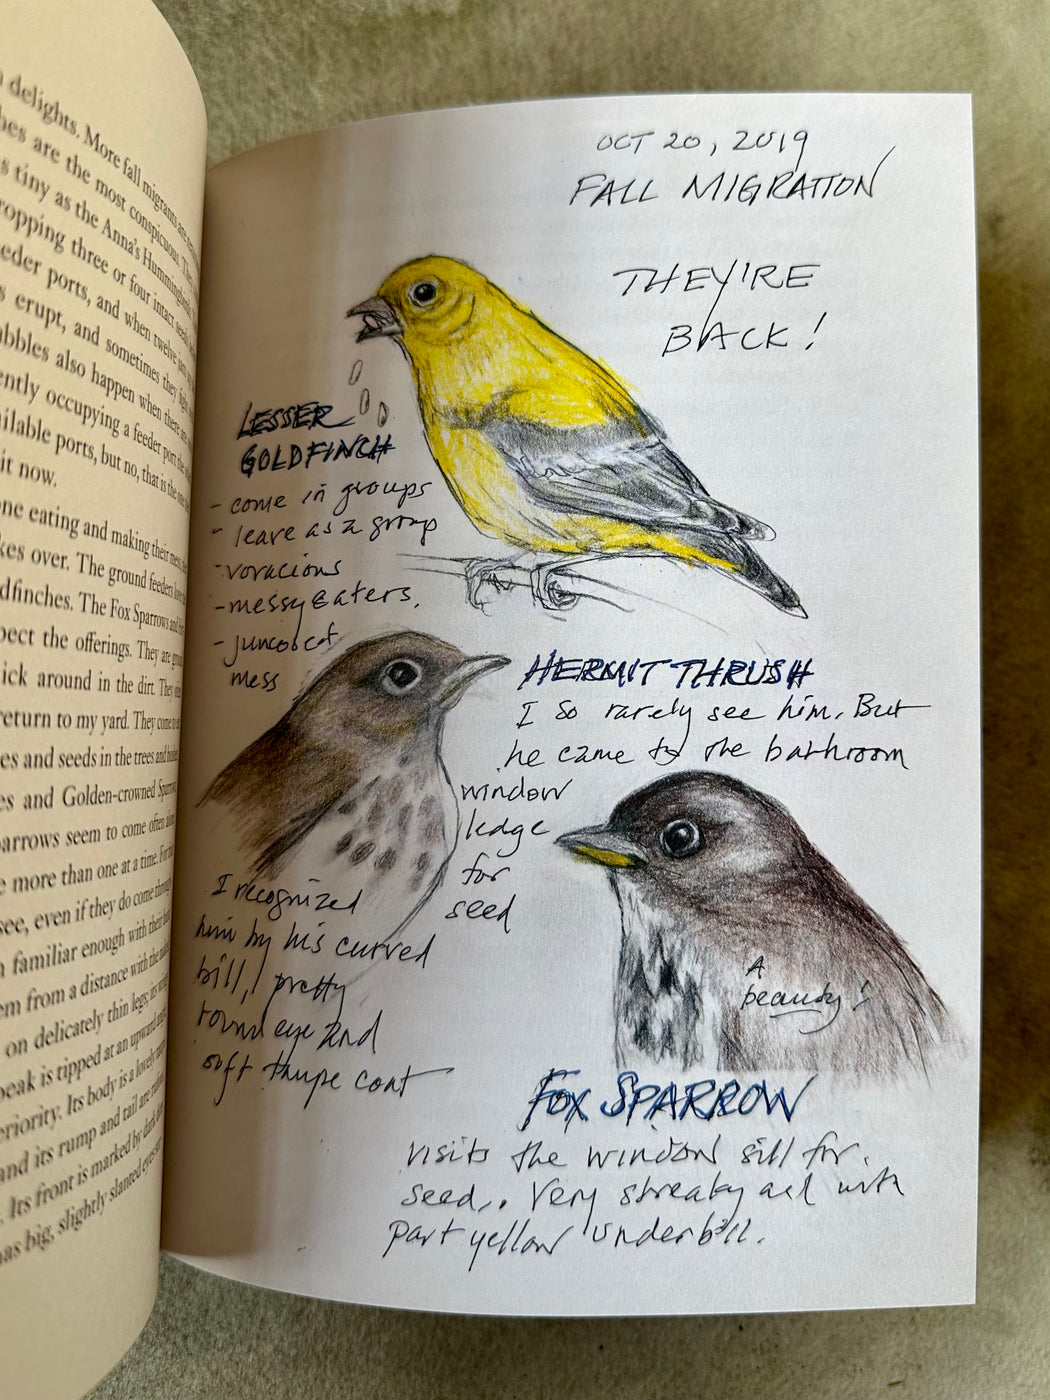 delights. More fall migrants are
are the most conspicuous.
tiny as the Anna's Hummingbird.
three or four intact seeds
ports, and when twelve
erupt, and sometimes they
also happen when there are
occupying a feeder port
ports, but no, that is the
it now.
eating and making their mess,
over. The ground feeders love
The Fox Sparrows and
the offerings. They are
around in the dirt. They
return to my yard. They come to
and seeds in the trees and
and Golden-crowned Sparrows
seem to come often
more than one at a time.
see, even if they do come through
familiar enough with their
from a distance with the
on delicately thin legs; its
is tipped at an upward
Its body is a lovely
and its rump and tail are
Its front is marked by dark
has big, slightly slanted eyes
OCT 20, 2019
FALL MIGRATION
THEY'RE
BACK!
LESSER
GOLDFINCH
- come in groups
- leave as a group
- voracious
- messy eaters,
- juncos eat
mess
HERMIT THRUSH
I so rarely see him. But
he came to the bathroom
window
ledge
for
seed
I recognized
him by his curved
bill, pretty
round eye and
soft taupe coat
A
beauty!
FOX SPARROW
visits the window sill for
seed. Very streaky and with
part yellow underbill.